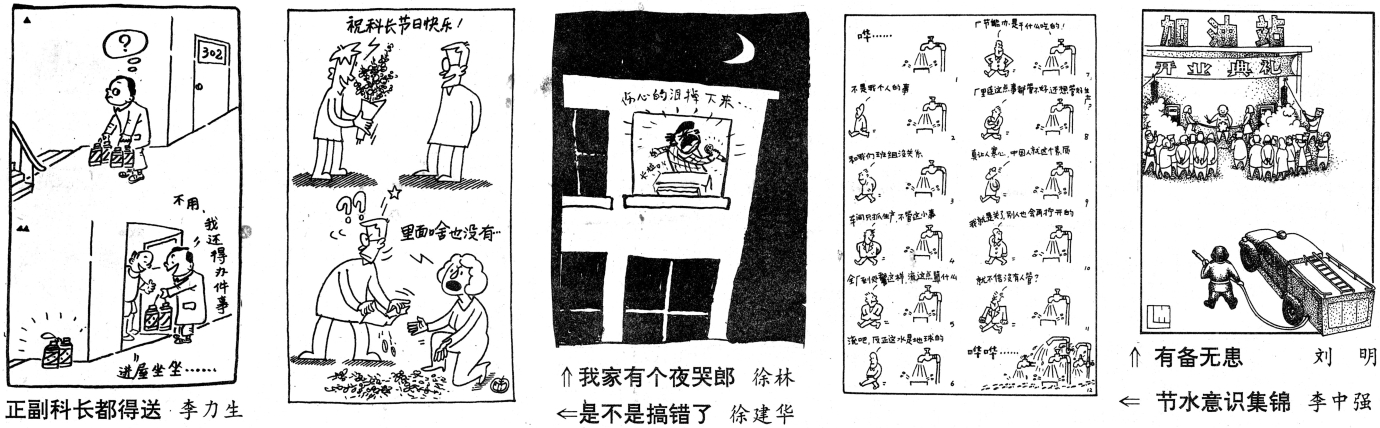 ?
302
不用,
我还得办件事
进屋坐坐……
正副科长都得送 李力生
祝科长节日快乐!
??
里面啥也没有…
伤心的泪掉下来…
卡拉OK
⇑我家有个夜哭郎 徐林
⇐是不是搞错了 徐建华
哗……
1
不是我个人的事
2
和我们班组没关系
3
车间只抓生产,不管这小事
4
全厂到处都这样,流这点算什么
5
流吧,反正这水是地球的
6
厂节能办是干什么吃的!
7
厂里连这点事都管不好,还想管好生产?
8
真让人寒心,中国人就这个素质
9
我就是关了,别人也会再拧开的
10
就不信没有人管?
11
哗哗……
12
加油站
开业典礼
⇑ 有备无患 刘 明
⇐ 节水意识集锦 李中强